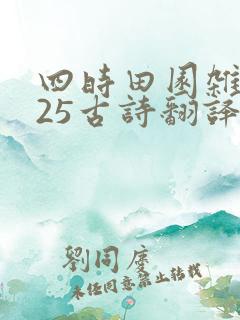 四時田園雜
25古詩翻譯
劉同慶
未经同意禁止转载